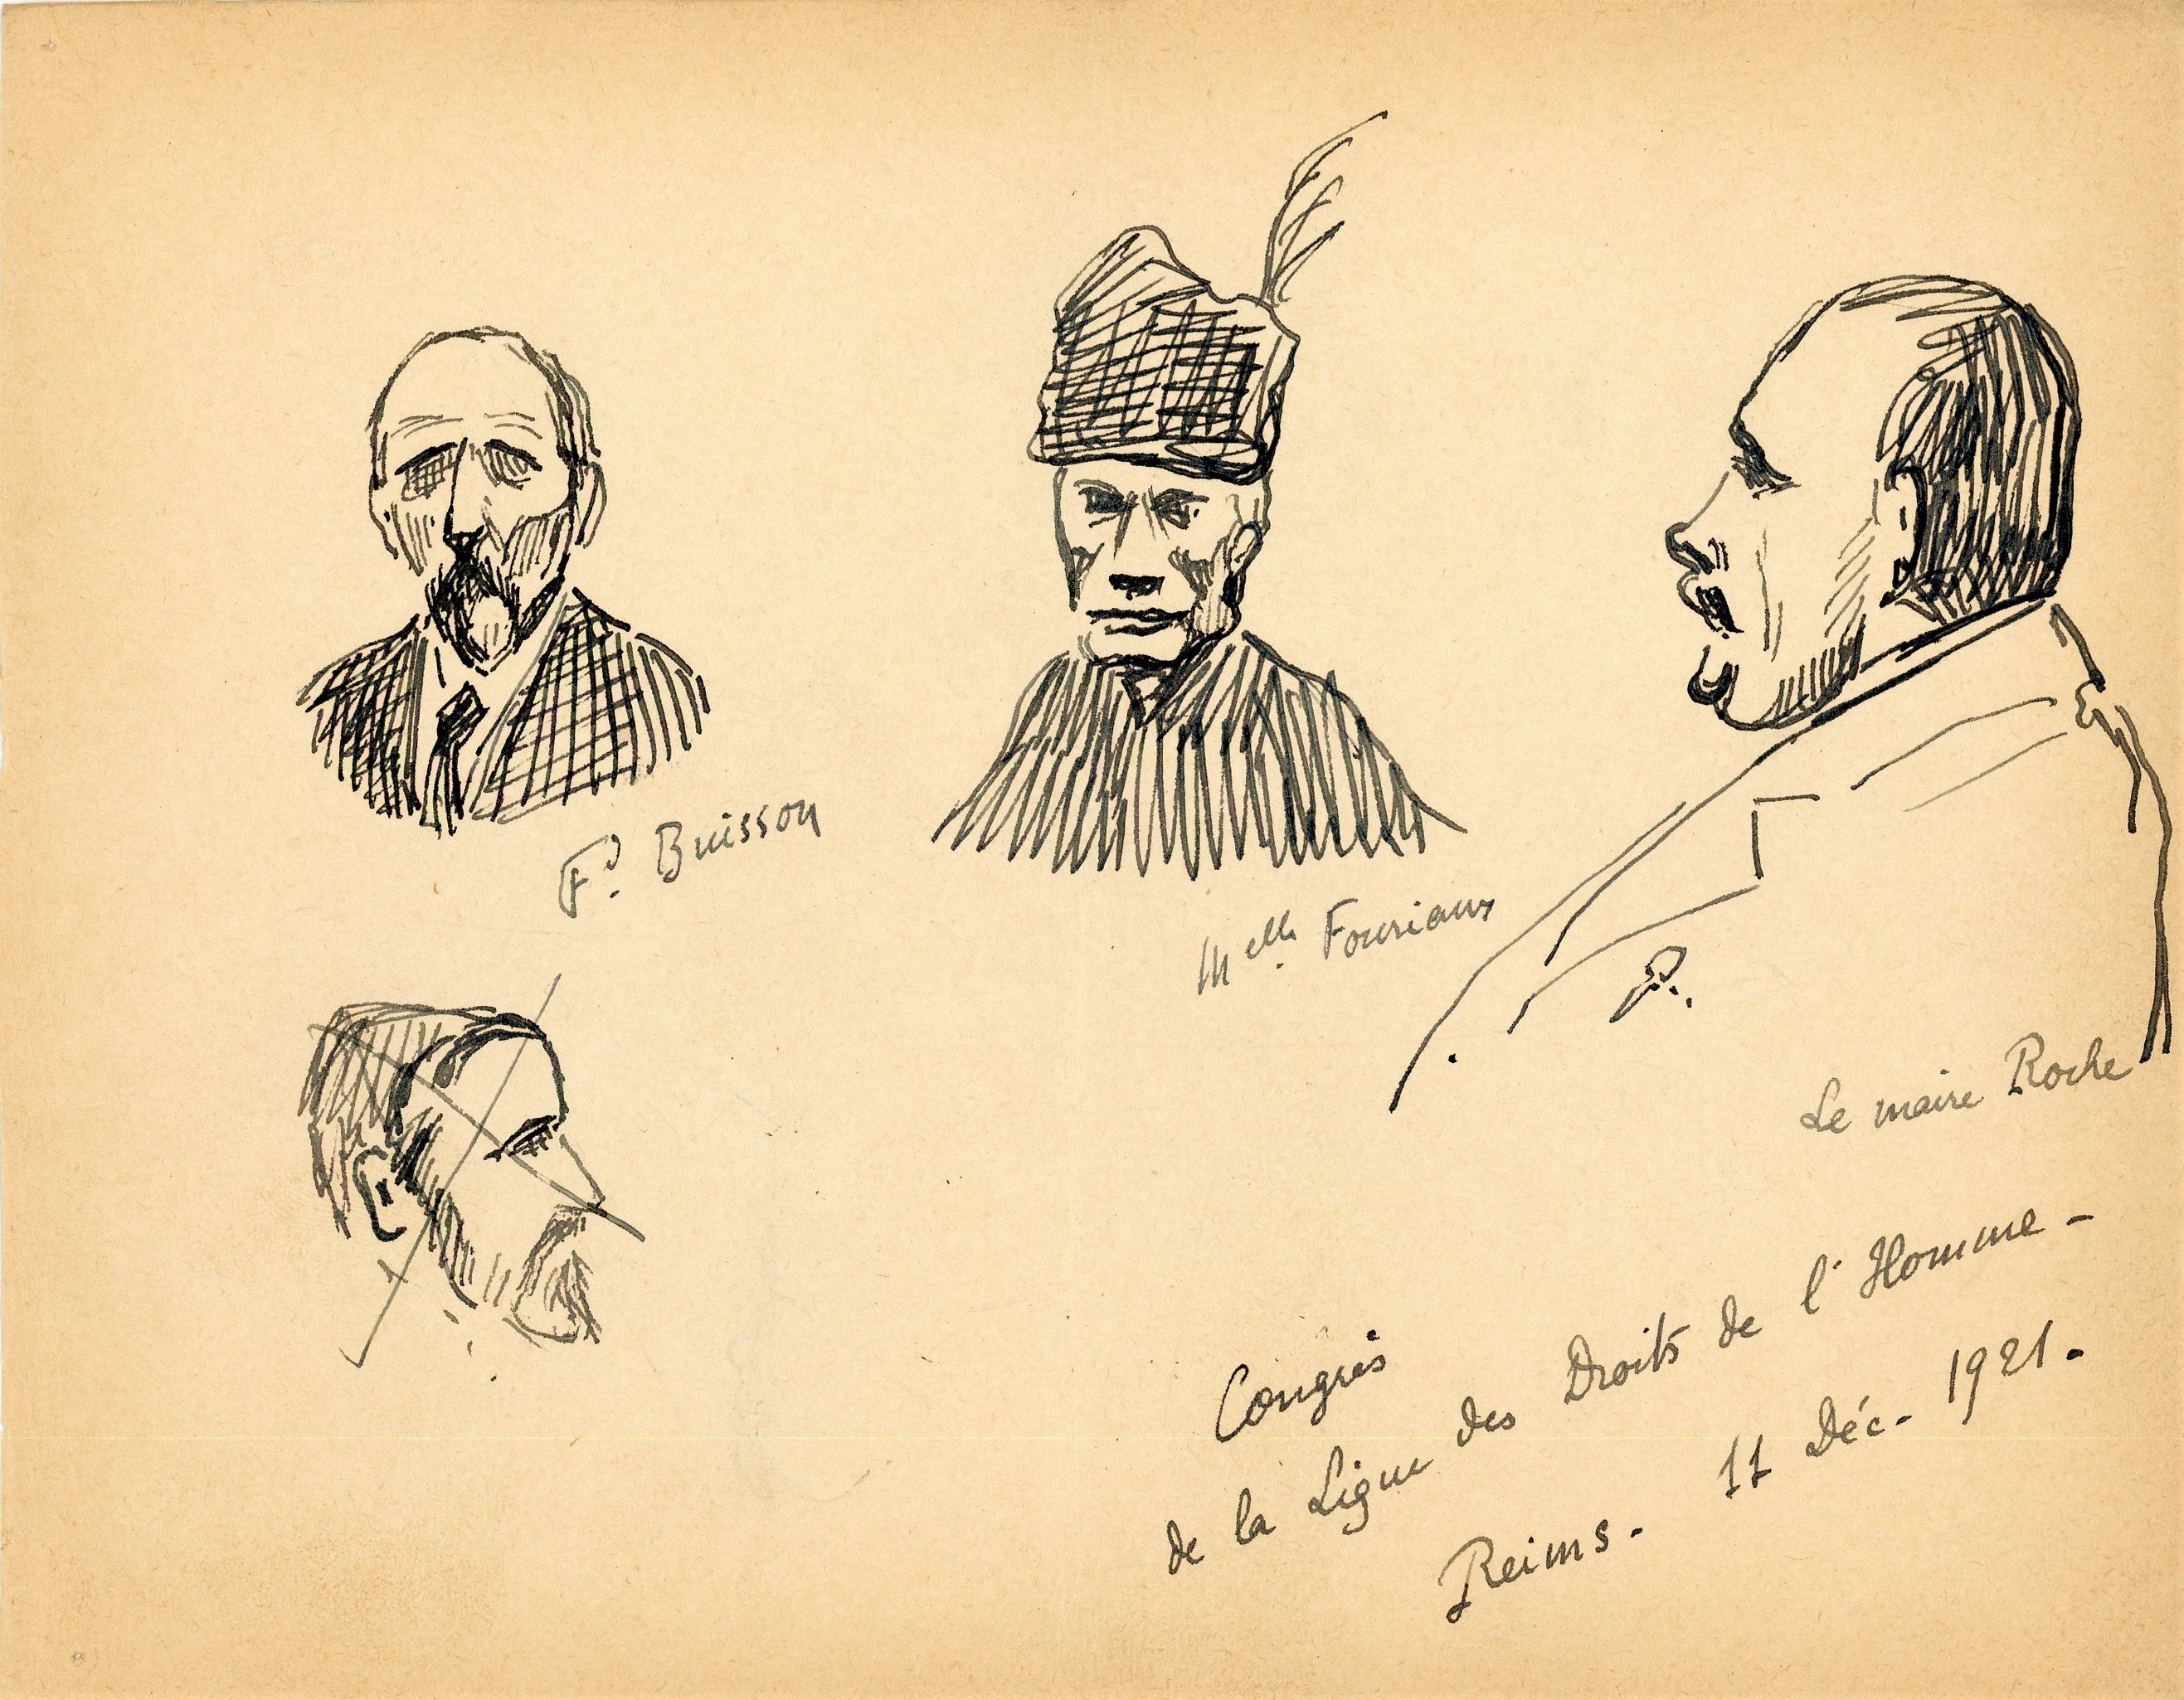 Fd. Buisson
Melle. Fouriaux
P.
Le maire Roche
Congrès
de la Ligue des Droits de l'Homme -
Reims. 11 Déc. 1921.